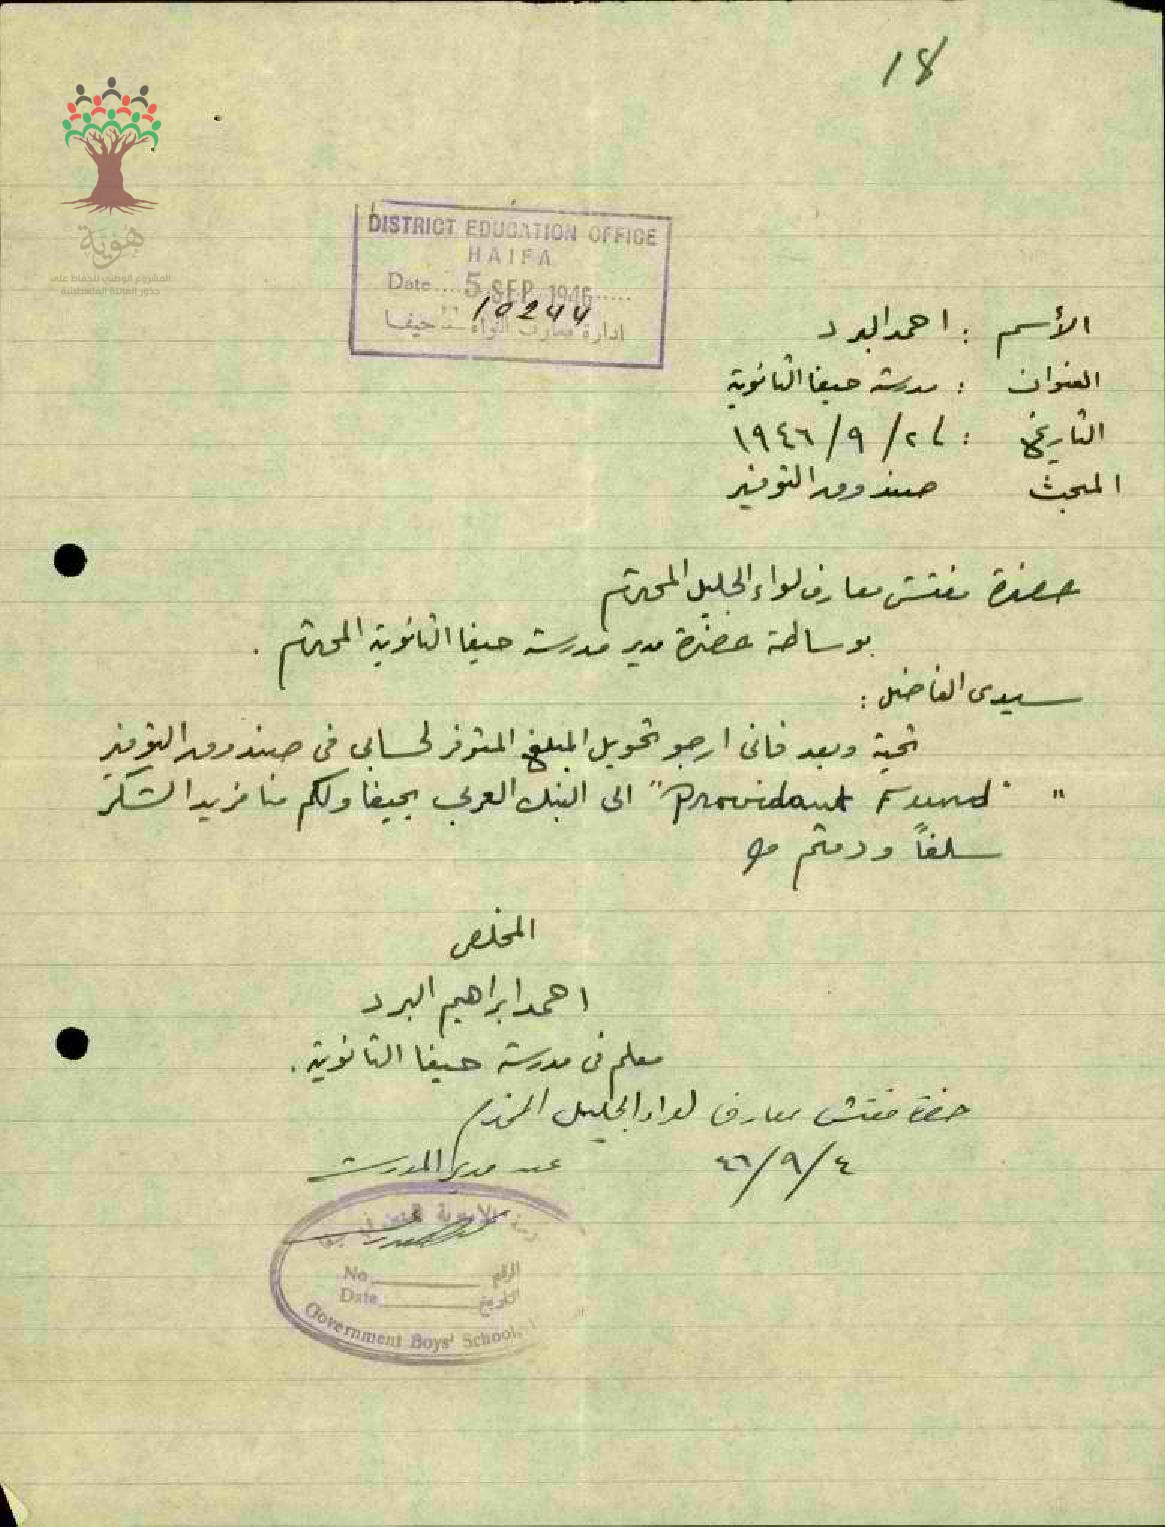 18
هوية
المشروع الوطني للحفاظ على
جذور العائلة الفلسطينية
DISTRICT EDUCATION OFFICE
HAIFA
Date 5 SEP 1946
10244
ادارة معارف اللواء حيفا
الأسم : احمد البرد
العنوان : مدرسة حيفا الثانوية
التاريخ : ٢ / ٩ / ١٩٤٦
المبحث صندوق التوفير
حضرة مفتش معارف لواء الجليل المحترم
بوساطة حضرة مدير مدرسة حيفا الثانوية المحترم .
سيدي الفاضل :
تحية وبعد فاني ارجو تحويل المبلغ المتوفر لحسابي في صندوق التوفير
" Providant Fund " الى البنك العربي بحيفا ولكم منا مزيد الشكر
سلفاً ودمتم
المخلص
احمد ابراهيم البرد
معلم في مدرسة حيفا الثانوية .
حضرة مفتش معارف لواء الجليل المحترم
٤ / ٩ / ٤٦
عن مدير المدرسة
No. الرقم
Date التاريخ
Government Boys' School,